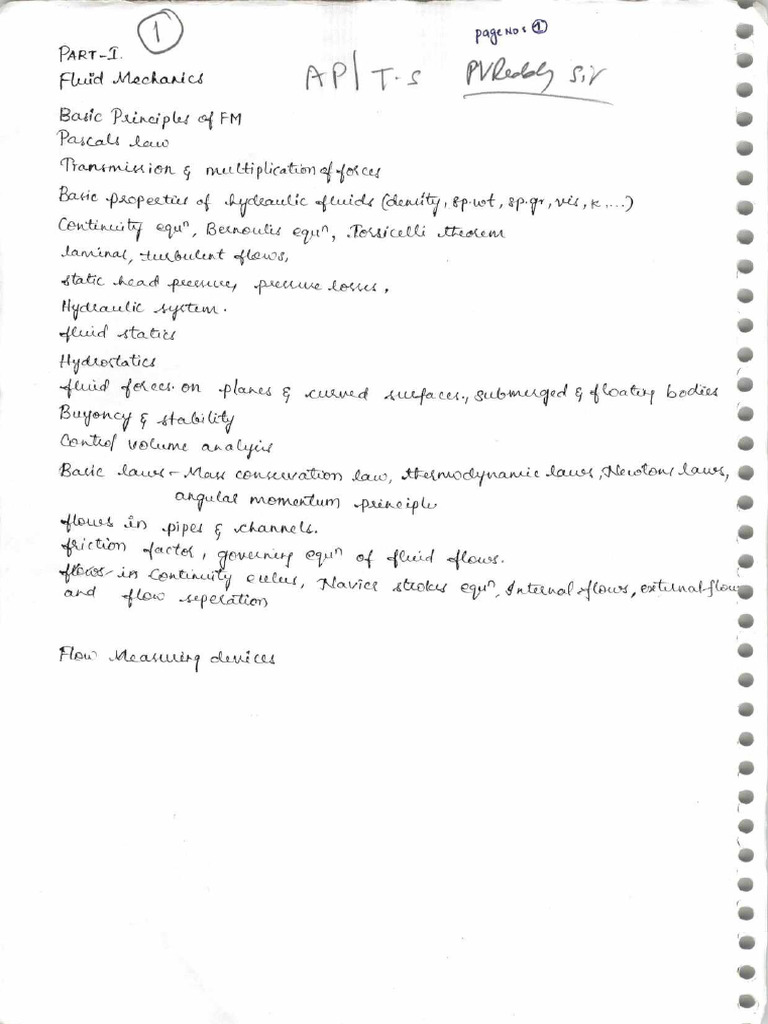 1
page Nos 1
PART-I.
Fluid Mechanics
AP/T.S PVReddy sir
Basic Principles of FM
Pascals law
Transmission & multiplication of forces
Basic properties of hydraulic fluids (density, sp.wt, sp.gr, vis, k,...)
Continuity equⁿ, Bernoulis equⁿ, Torricelli theorem
laminar, turbulent flows,
static head pressure, pressure losses,
Hydraulic system.
fluid statics
Hydrostatics
fluid forces on planes & curved surfaces., submerged & floating bodies
Buyoncy & stability
Control volume analysis
Basic laws - Mass conservation law, thermodynamic laws, Newtons laws,
angular momentum principle
flows in pipes & channels.
friction factor, governing equⁿ of fluid flows.
flows in Continuity, Navier strokes equⁿ, Internal flows, external flow
and flow seperation
Flow Measuring devices